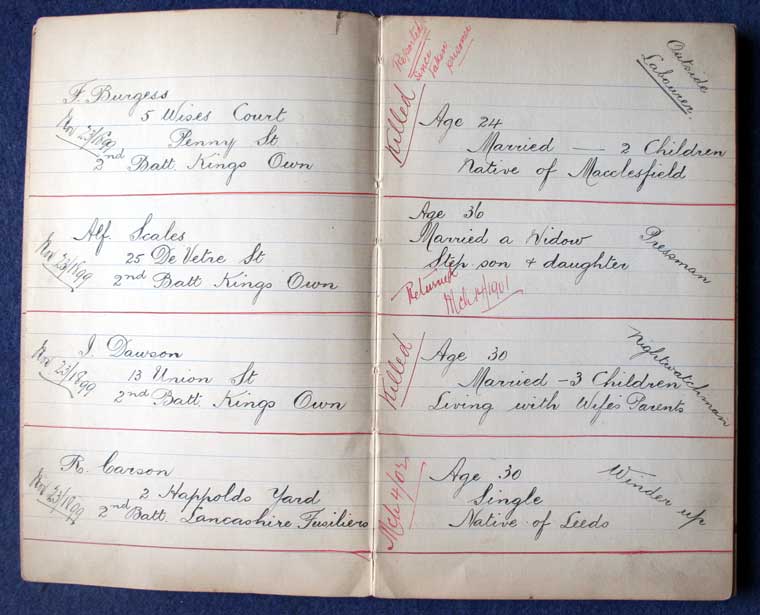 F. Burgess
5 Wises Court
Penny St
2nd Batt. Kings Own
Nov 23/1899
Alf. Scales
25 De Vetre St
2nd Batt Kings Own
Nov 23/1899
J. Dawson
13 Union St
2nd Batt. Kings Own
Nov 23/1899
R. Carson
2 Happolds Yard
2nd Batt. Lancashire Fusiliers
Nov 23/1899
Reported
since
taken
prisoner
Killed
Outside
Labourer.
Age 24
Married — 2 Children
Native of Macclesfield
Age 36
Married a Widow
Step-son & daughter
Pressman
Returned
Mch 14/1901
Killed
Age 30
Married - 3 Children
Living with Wife's Parents
Nightwatchman
Mch 4/02
Age 30
Single
Native of Leeds
Winder up